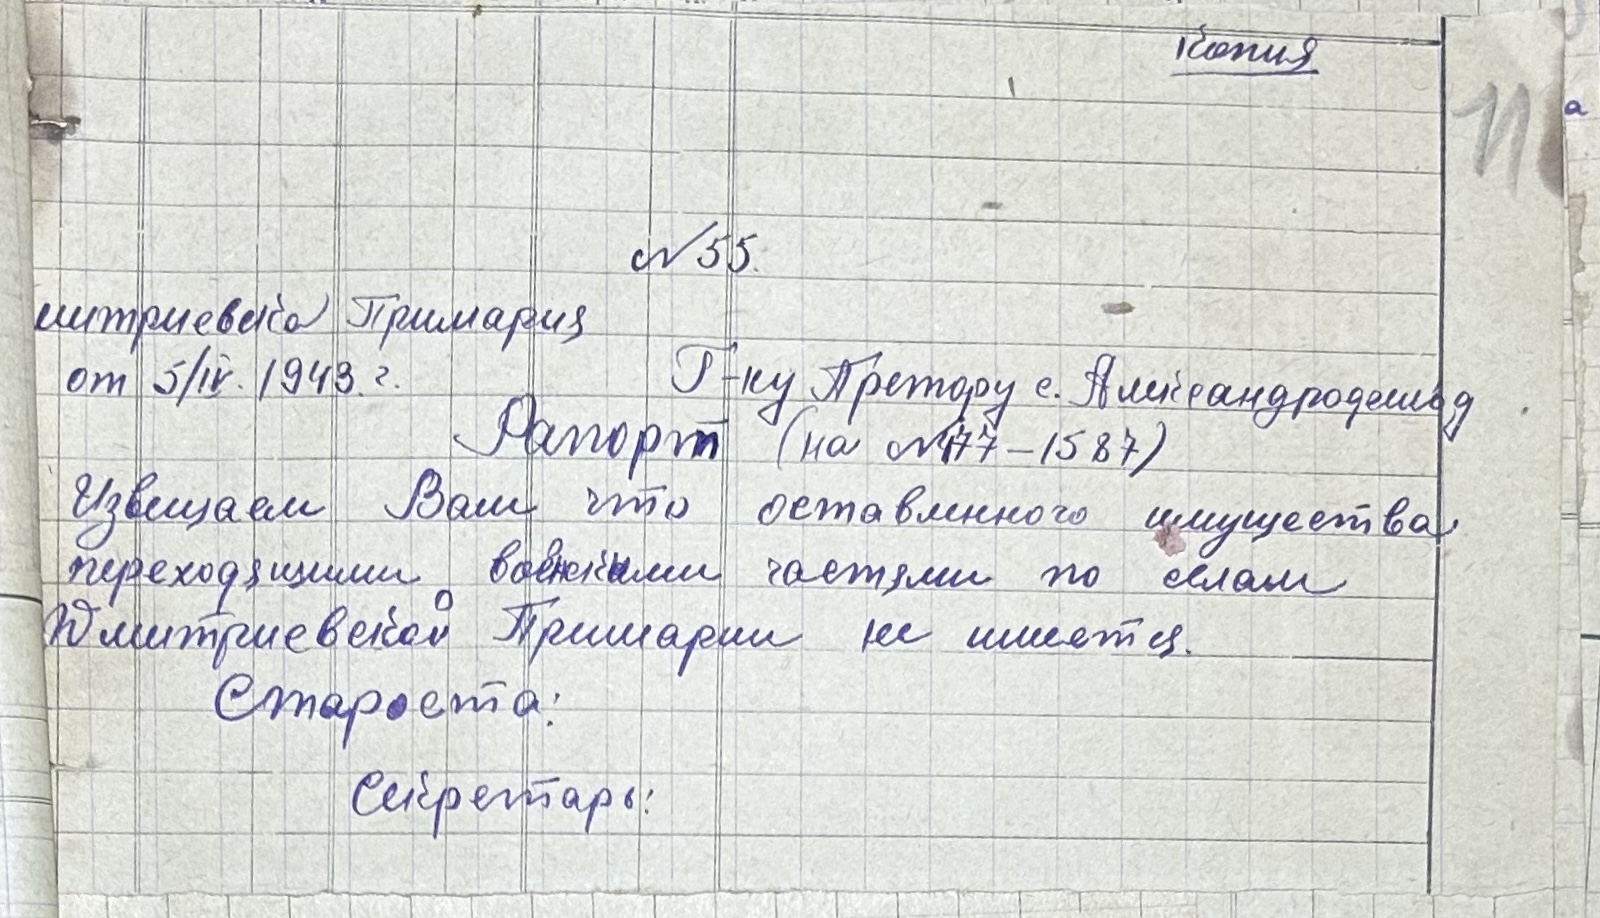 Копия
11
а
№ 55.
митриевска Примария
от 5/IV. 1943. г.
Г-ну Претору с. Александродешид
Рапорт (на № 177-1587)
Извещаем Вам что оставленного имущества
переходящими воинскими частями по селам
Дмитриевской Примарии не имеется.
Староста:
Секретарь: